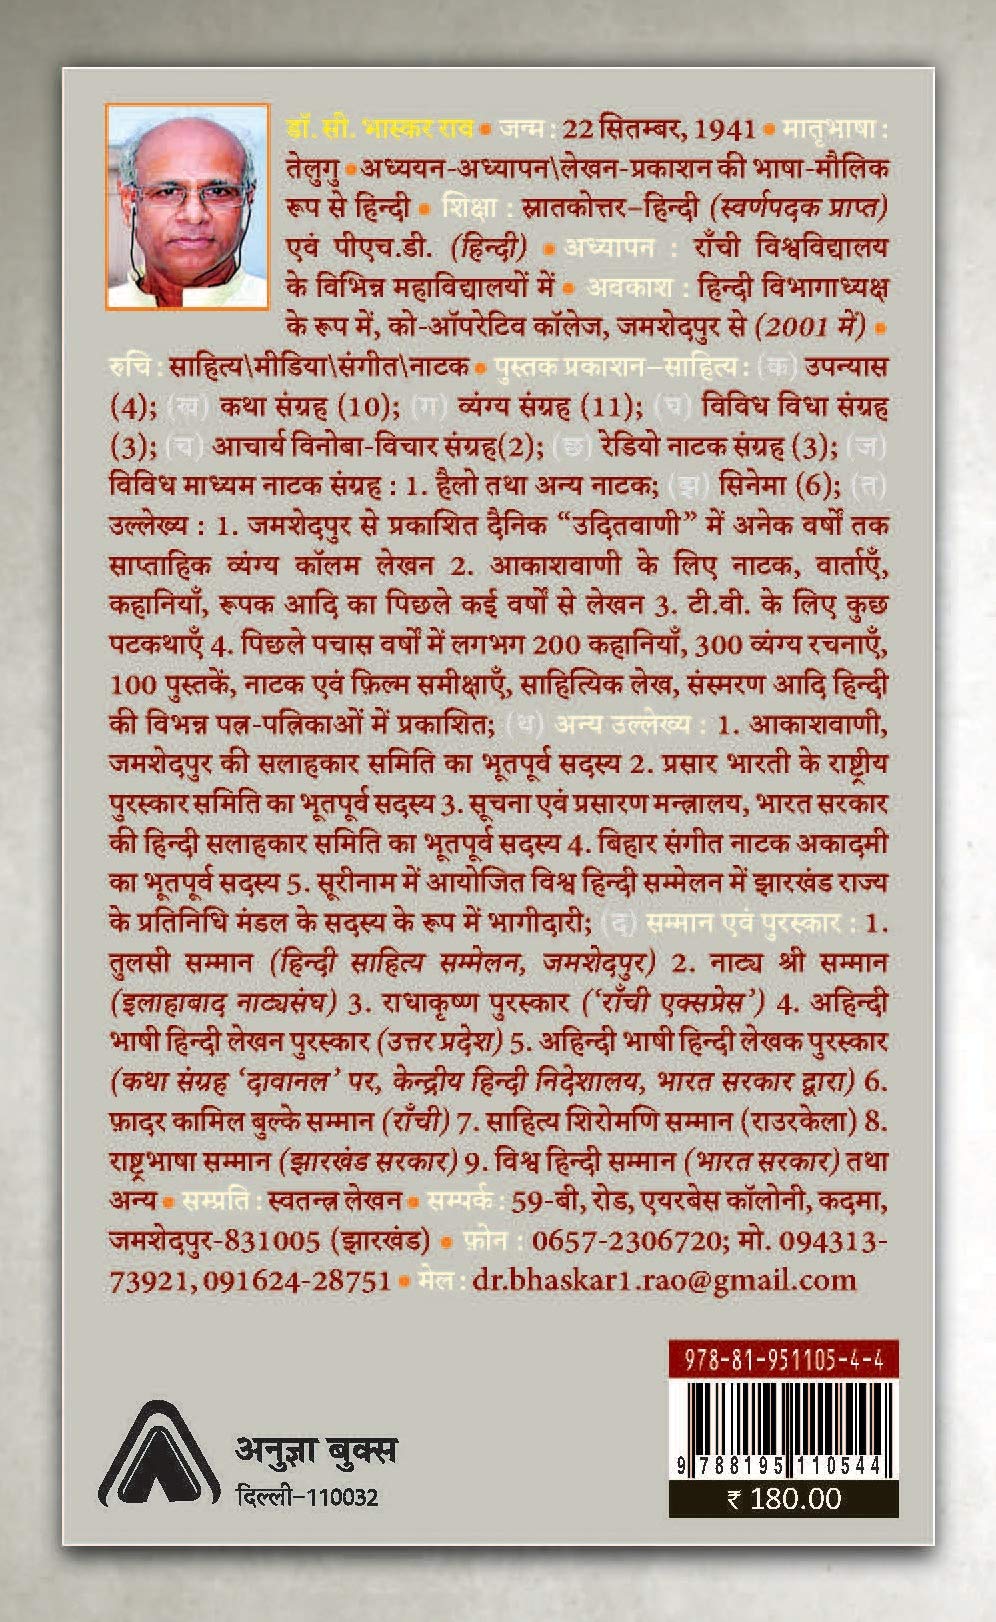 डॉ. सी. भास्कर राव • जन्म : 22 सितम्बर, 1941 • मातृभाषा :
तेलुगु • अध्ययन-अध्यापन\लेखन-प्रकाशन की भाषा-मौलिक
रूप से हिन्दी • शिक्षा : स्नातकोत्तर–हिन्दी (स्वर्णपदक प्राप्त)
एवं पीएच.डी. (हिन्दी) • अध्यापन : राँची विश्वविद्यालय
के विभिन्न महाविद्यालयों में • अवकाश : हिन्दी विभागाध्यक्ष
के रूप में, को-ऑपरेटिव कॉलेज, जमशेदपुर से (2001 में) •
रुचि : साहित्य\मीडिया\संगीत\नाटक • पुस्तक प्रकाशन–साहित्य : (क) उपन्यास
(4); (ख) कथा संग्रह (10); (ग) व्यंग्य संग्रह (11); (घ) विविध विधा संग्रह
(3); (च) आचार्य विनोबा-विचार संग्रह(2); (छ) रेडियो नाटक संग्रह (3); (ज)
विविध माध्यम नाटक संग्रह : 1. हैलो तथा अन्य नाटक; (झ) सिनेमा (6); (त)
उल्लेख्य : 1. जमशेदपुर से प्रकाशित दैनिक “उदितवाणी” में अनेक वर्षों तक
साप्ताहिक व्यंग्य कॉलम लेखन 2. आकाशवाणी के लिए नाटक, वार्ताएँ,
कहानियाँ, रूपक आदि का पिछले कई वर्षों से लेखन 3. टी.वी. के लिए कुछ
पटकथाएँ 4. पिछले पचास वर्षों में लगभग 200 कहानियाँ, 300 व्यंग्य रचनाएँ,
100 पुस्तकें, नाटक एवं फ़िल्म समीक्षाएँ, साहित्यिक लेख, संस्मरण आदि हिन्दी
की विभन्न पत्र-पत्रिकाओं में प्रकाशित; (थ) अन्य उल्लेख्य : 1. आकाशवाणी,
जमशेदपुर की सलाहकार समिति का भूतपूर्व सदस्य 2. प्रसार भारती के राष्ट्रीय
पुरस्कार समिति का भूतपूर्व सदस्य 3. सूचना एवं प्रसारण मन्त्रालय, भारत सरकार
की हिन्दी सलाहकार समिति का भूतपूर्व सदस्य 4. बिहार संगीत नाटक अकादमी
का भूतपूर्व सदस्य 5. सूरीनाम में आयोजित विश्व हिन्दी सम्मेलन में झारखंड राज्य
के प्रतिनिधि मंडल के सदस्य के रूप में भागीदारी; (द) सम्मान एवं पुरस्कार : 1.
तुलसी सम्मान (हिन्दी साहित्य सम्मेलन, जमशेदपुर) 2. नाट्य श्री सम्मान
(इलाहाबाद नाट्यसंघ) 3. राधाकृष्ण पुरस्कार (‘राँची एक्सप्रेस’) 4. अहिन्दी
भाषी हिन्दी लेखन पुरस्कार (उत्तर प्रदेश) 5. अहिन्दी भाषी हिन्दी लेखक पुरस्कार
(कथा संग्रह ‘दावानल’ पर, केन्द्रीय हिन्दी निदेशालय, भारत सरकार द्वारा) 6.
फ़ादर कामिल बुल्के सम्मान (राँची) 7. साहित्य शिरोमणि सम्मान (राउरकेला) 8.
राष्ट्रभाषा सम्मान (झारखंड सरकार) 9. विश्व हिन्दी सम्मान (भारत सरकार) तथा
अन्य • सम्प्रति : स्वतन्त्र लेखन • सम्पर्क : 59-बी, रोड, एयरबेस कॉलोनी, कदमा,
जमशेदपुर-831005 (झारखंड) • फ़ोन : 0657-2306720; मो. 094313-
73921, 091624-28751 • मेल : dr.bhaskar1.rao@gmail.com
978-81-951105-4-4
9 788195 110544
₹ 180.00
अनुज्ञा बुक्स
दिल्ली–110032